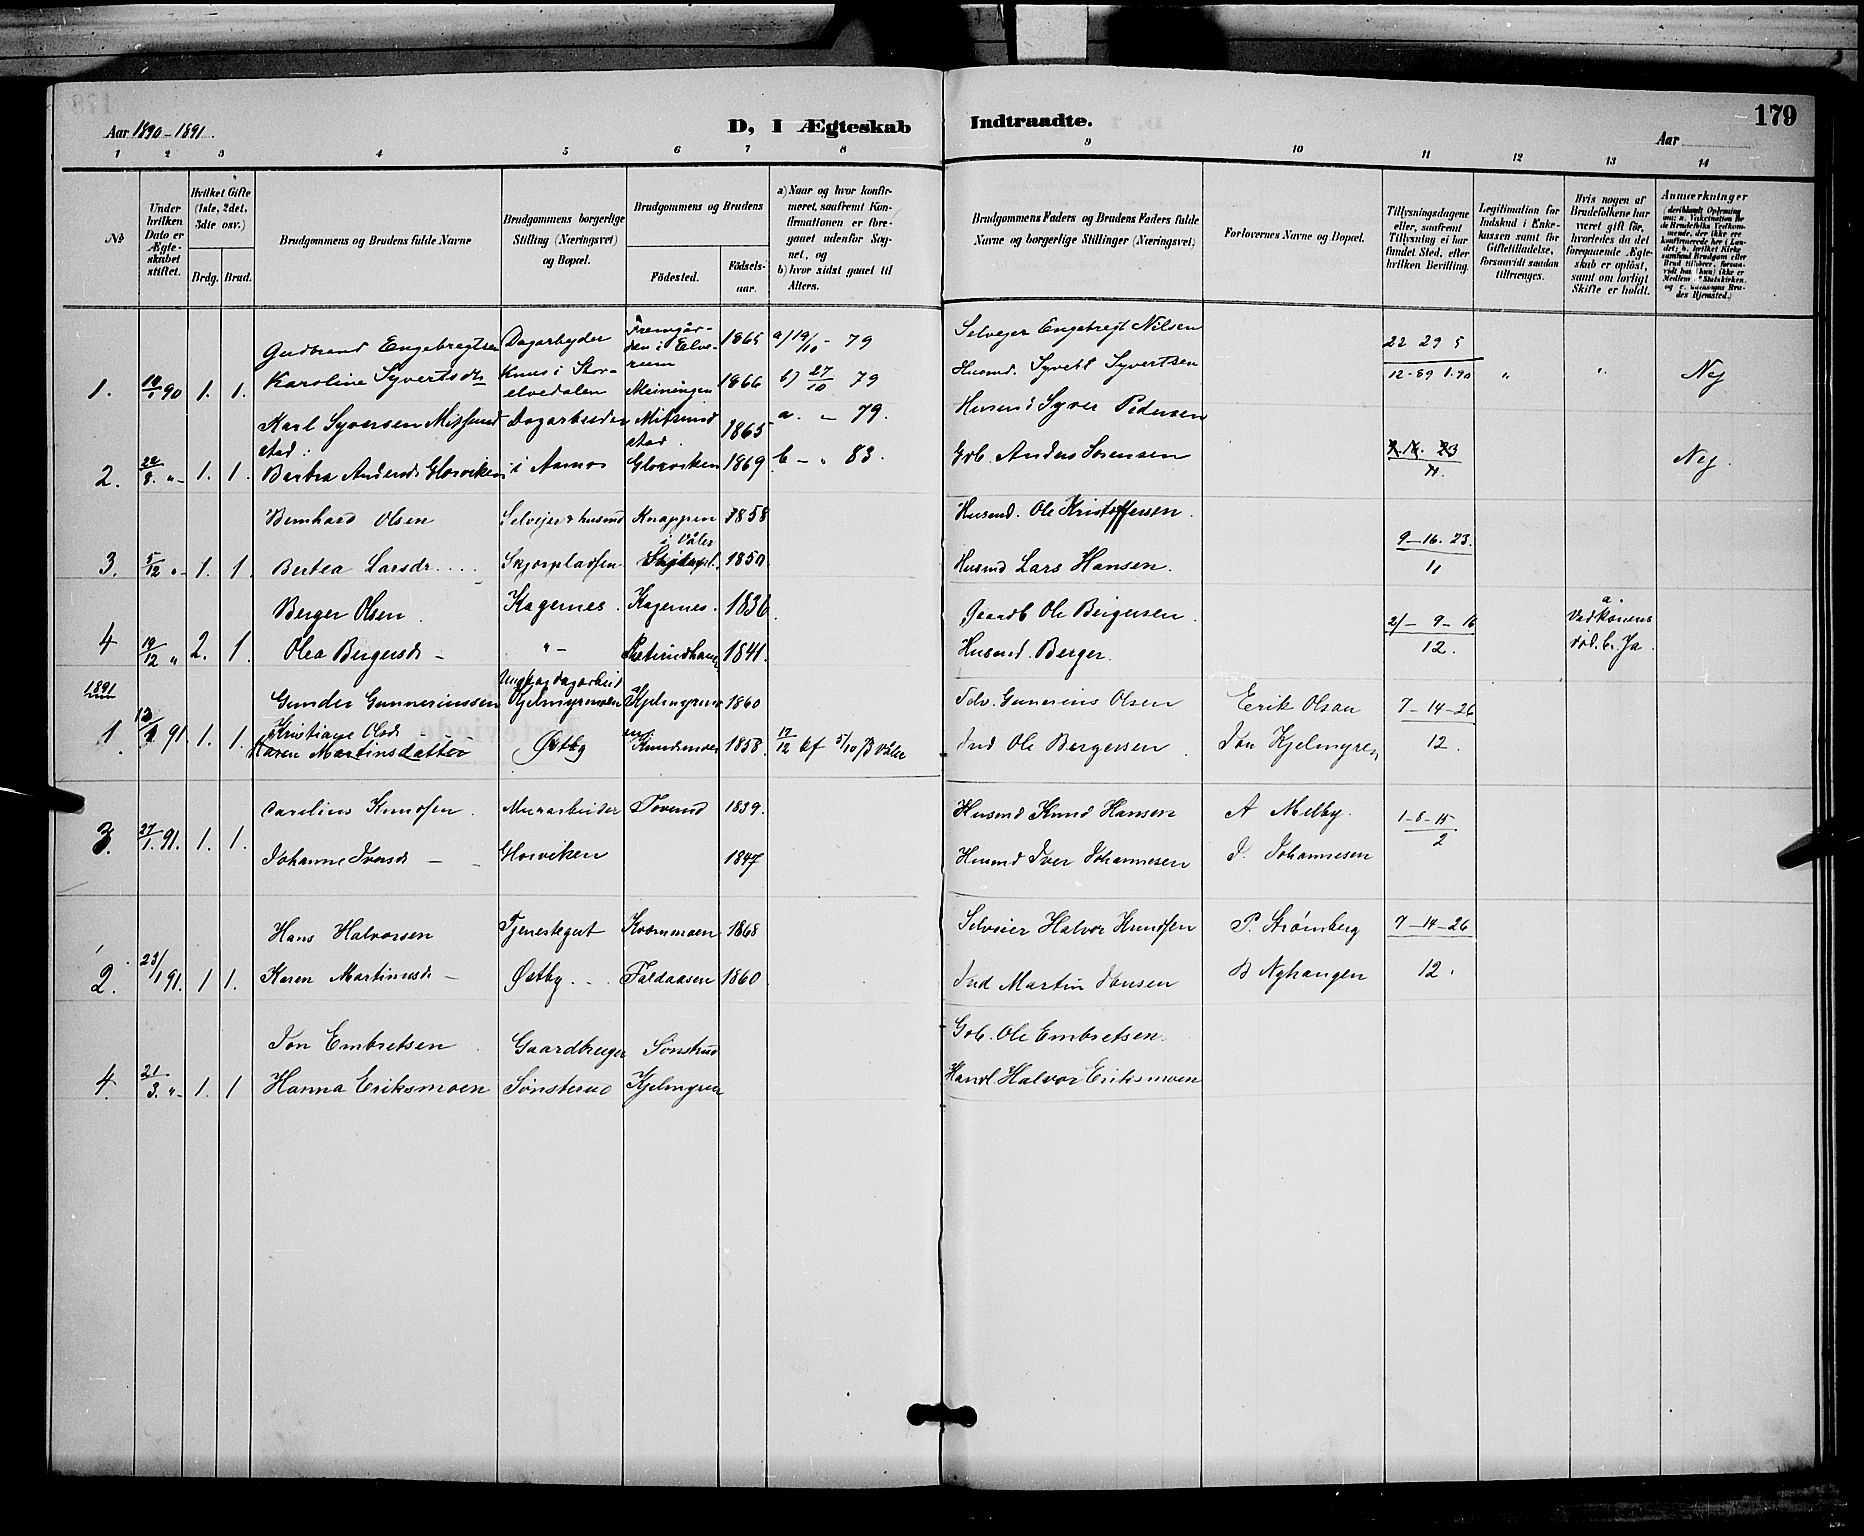 179
Aar 1890-1891.
D, I Ægteskab Indtraadte.
Aar
1 2 3 4 5 6 7 8 9 10 11 12 13 14
No
Under hvilken Dato er Ægteskabet stiftet.
Hvilket Gifte (1ste, 2det, 3die osv.)
Brdg. Brud.
Brudgommens og Brudens fulde Navne
Brudgommens borgerlige Stilling (Næringsvei) og Bopæl.
Brudgommens og Brudens
Födested. Födselsaar.
a) Naar og hvor konfirmeret, saafremt Konfirmationen er foregaaet udenfor Sognet, og
b) hvor sidst gaaet til Alters.
Brudgommens Faders og Brudens Faders fulde Navne og borgerlige Stillinger (Næringsvei)
Forlovernes Navne og Bopæl.
Tillysningsdagene eller, saafremt Tillysning ei har fundet Sted, efter hvilken Bevilling.
Legitimation for Indskud i Enkekassen samt for Giftetilladelse, forsaavidt saadan tiltrænges.
Hvis nogen af Brudefolkene har været gift för, hvorledes da det foregaaende Ægteskab er oplöst, samt om lovligt Skifte er holdt.
Anmærkninger
Gudbrand Engebregtsen Dagarbeyder Fremgår-den i Elve-rum 1865 a) 19/10 - 79 Selveier Engebregt Nilsen 22 29 5
1. 90 1. 1. Karoline Syvertsdr Knus i Stor-elvedalen Meiningen 1866 b) 27/10 79 Husmd. Syvert Syvertsen 12-89 1.90 " " Nej
Karl Syversen Mitsund stad: Dagarbeider Mitsund stad. 1865 a. " 79. Husmd Syver Pedersen
2. 22/8 "- 1. 1. Berthea Andersd. Glosviken i Aamos Glosviken 1869 b - " 83. Grb. Anders Sørensen 11. Nej.
Bernhard Olsen Selveier & husmd Knappen i Våler 1858 Husmd. Ole Kristoffersen. 9-16. 23.
3. 5/12 " 1. 1. Bertea Larsdr. Skjærpladsen 1850. Husmd Lars Hansen. 11
Berger Olsen Kagernes. Kagernes. 1836 Gaardb Ole Bergersen 21 - 9 - 16 a. Ved konens
4 19/12 " 2. 1. Olea Bergersdr - "- 1841. Husmd. Berger. 12. död. b. Ja.
1891 Gunder Gunneriussen Ungkar dagarbeid Kjelmyrmoen Kjelmyren 1860 Selv. Gunerius Olsen Erik Olsen 7-14-26
1. 91. 1. 1. Kristiane Olsd. Karen Martinsdatter Østby Knudsmoen 1858 Ind Ole Bergersen Jon Kjelmyren 12.
Carelius Knudsen. Murarbeider 1839. Husmd Knud Hansen A Melby. 1-8-15
3. 27/1. 91. 1. 1. Johanne Iversdr - Glosviken 1847 Husmd Iver Johannesen J. Johannesen 2
Hans Halvorsen Tjenestegut Kvæmmoen 1868 Selveier Halvor Knudsen P. Strømberg 7-14-26
2. 23/1 91. 1 1. Karen Martinusdr - Østby Faldaasen 1860 Ind Martin Jonsen B Nyhangen 12.
Jon Embretsen Gaardbruger Sønsterud Grb. Ole Embretsen.
4. 21/3. "- 1. 1 Hanna Eriksmoen Sønsterud Kjelmyren Handl. Halvor Eriksmoen